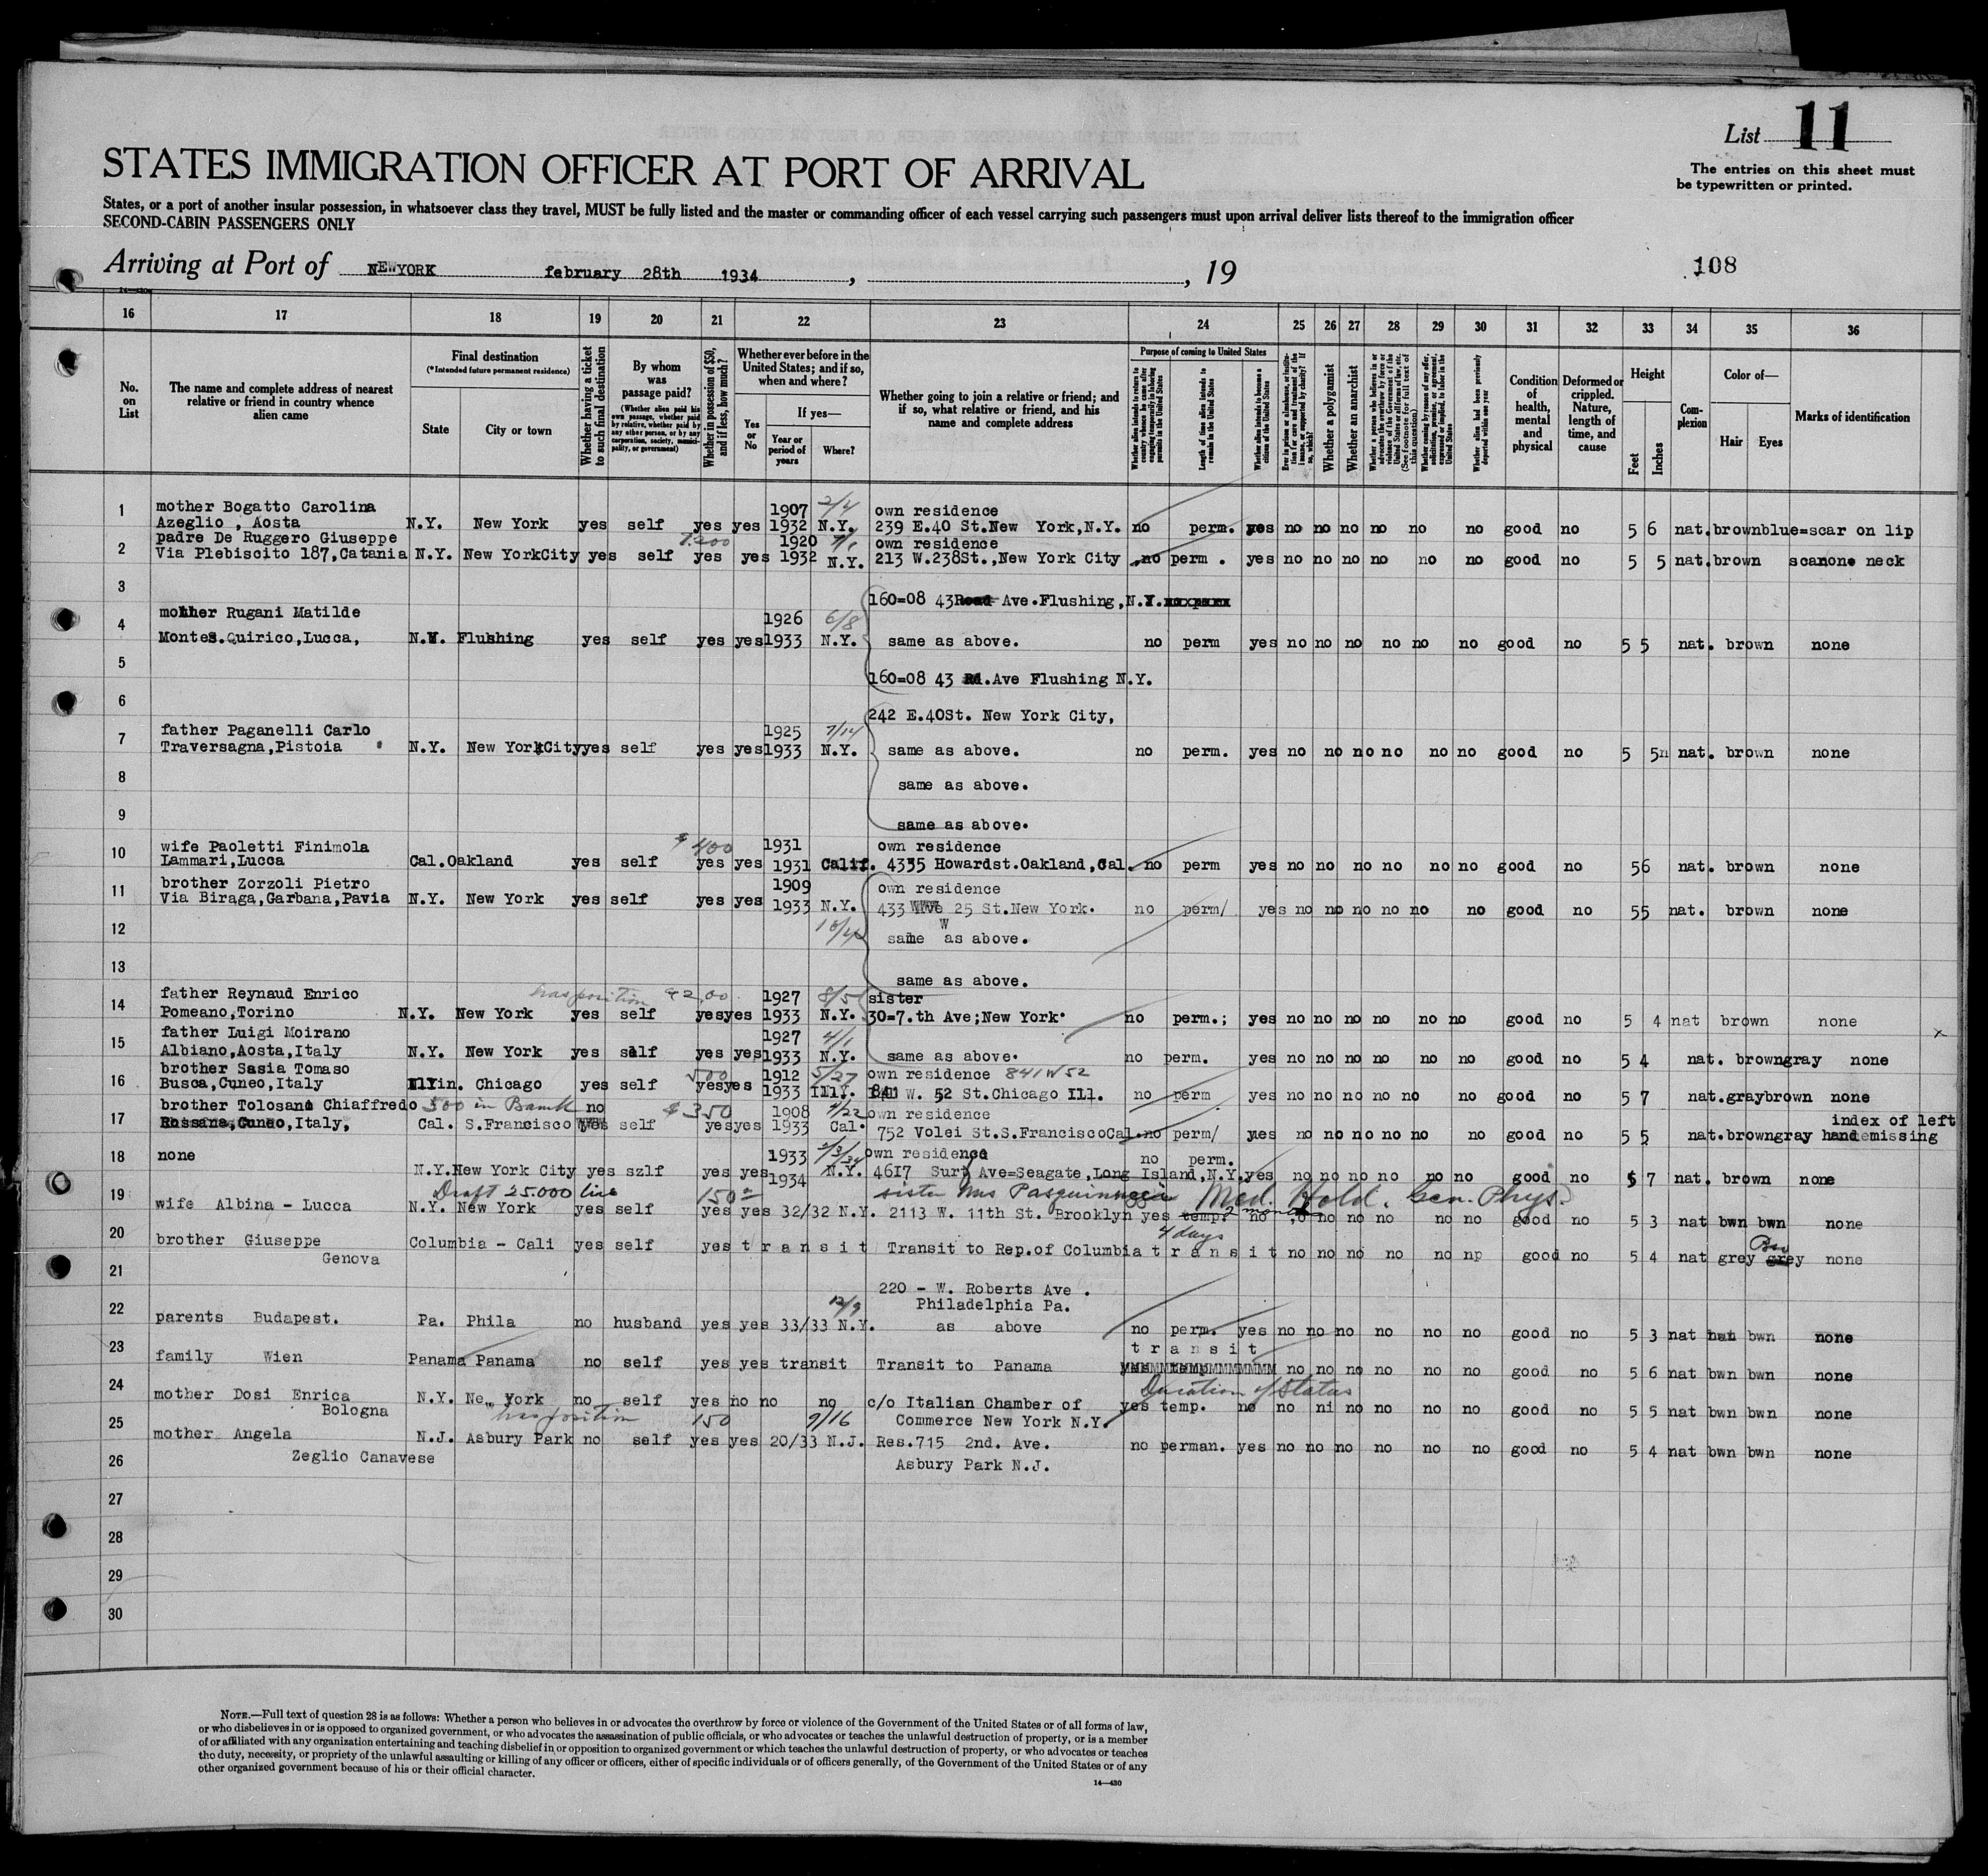 List 11
The entries on this sheet must
be typewritten or printed.
STATES IMMIGRATION OFFICER AT PORT OF ARRIVAL
States, or a port of another insular possession, in whatsoever class they travel, MUST be fully listed and the master or commanding officer of each vessel carrying such passengers must upon arrival deliver lists thereof to the immigration officer
SECOND-CABIN PASSENGERS ONLY
Arriving at Port of NEWYORK february 28th 1934 , , 19
108
16 17 18 19 20 21 22 23 24 25 26 27 28 29 30 31 32 33 34 35 36
No. on List
The name and complete address of nearest relative or friend in country whence alien came
Final destination
(*Intended future permanent residence)
State
City or town
Whether having a ticket to such final destination
By whom was passage paid?
(Whether alien paid his own passage, whether paid by relative, whether paid by any other person, or by any corporation, society, municipality, or government)
Whether in possession of $50, and if less, how much?
Whether ever before in the United States; and if so, when and where?
Yes or No
If yes—
Year or period of years
Where?
Whether going to join a relative or friend; and if so, what relative or friend, and his name and complete address
Purpose of coming to United States
Whether alien intends to return to country whence he came after engaging temporarily in laboring pursuits in the United States
Length of time alien intends to remain in the United States
Whether alien intends to become a citizen of the United States
Ever in prison or almshouse, or institution for care and treatment of the insane, or supported by charity? If so, which?
Whether a polygamist
Whether an anarchist
Whether a person who believes in or advocates the overthrow by force or violence of the Government of the United States or all forms of law, etc. (See footnote for full text of this question)
Whether coming by reason of any offer, solicitation, promise, or agreement, expressed or implied, to labor in the United States
Whether alien had been previously deported within one year
Condition of health, mental and physical
Deformed or crippled. Nature, length of time, and cause
Height
Feet
Inches
Complexion
Color of—
Hair
Eyes
Marks of identification
mother Bogatto Carolina 1907 2/4 own residence
1 Azeglio , Aosta N.Y. New York yes self yes yes 1932 N.Y. 239 E.40 St.New York,N.Y. no perm. yes no no no no no no good no 5 6 nat.brownblue=scar on lip
padre De Ruggero Giuseppe 1920 own residence
2 Via Plebiscito 187,Catania N.Y. New YorkCity yes self yes yes 1932 N.Y. 213 W.238St.,New York City no perm . yes no no no no no no good no 5 5 nat.brown scar neck
3
160=08 43 Ave.Flushing,N.Y.
mother Rugani Matilde 1926 6/8
4 MonteS.Quirico,Lucca, Flushing yes self yes yes1933 N.Y. same as above. no perm yes no no no no no no good no 5 5 nat. brown none
5 160=08 43 .Ave Flushing N.Y.
6 242 E.40St. New York City,
father Paganelli Carlo 1925 7/14
7 Traversagna,Pistoia N.Y. New YorkCityyes self yes yes1933 N.Y. same as above. no perm. yes no no no no no no good no 5 5n nat. brown none
8 same as above.
9 same as above.
wife Paoletti Finimola $400 1931 own residence
10 Lammari,Lucca Cal.Oakland yes self yes yes 1931 Calif. 4335 Howardst.Oakland,Cal. no perm yes no no no no no no good no 56 nat. brown none
brother Zorzoli Pietro 1909 own residence
11 Via Biraga,Garbana,Pavia N.Y. New York yes self yes yes 1933 N.Y. 433 25 St.New York. no perm/ yes no no no no no no good no 55 nat. brown none
W
12 10/4 same as above.
13 same as above.
father Reynaud Enrico has position 1927 8/5 sister
14 Pomeano,Torino N.Y. New York yes self yesyes 1933 N.Y. 30=7.th Ave;New York. no perm.; yes no no no no no no good no 5 4 nat brown none
father Luigi Moirano 1927 4/1
15 Albiano,Aosta,Italy N.Y. New York yes self yes yes1933 N.Y. same as above. no perm. yes no no no no no no good no 5 4 nat. browngray none x
brother Sasia Tomaso 500 1912 5/27 own residence 841 W 52
16 Busca,Cuneo,Italy Chicago yes self yesyes 1933 841 W. 52 St.Chicago Ill. no perm yes no no no no no no good no 5 7 nat.graybrown none
brother Tolosano Chiaffredo 500 in Bank no $350 1908 4/22 own residence index of left
17 Rossana,Cuneo,Italy, Cal. S.Francisco self yesyes 1933 Cal. 752 Volei St.S.FranciscoCal.no perm/ yes no no no no no no good no 5 5 nat.browngray hand missing
18 none 1933 2/3/34 own residence no perm.
N.Y.New York City yes szlf yes yes 1934 N.Y. 4617 Surf Ave=Seagate,Long Island,N.Y.yes no no no no no no good no 5 7 nat. brown none
Draft 25.000 lire 150 sister Mrs Med. Hold. Gen. Phys.
19 wife Albina - Lucca N.Y. New York yes self yes yes 32/32 N.Y. 2113 W. 11th St. Brooklyn yes temp. 2 months no no no no no no good no 5 3 nat bwn bwn none
4 days
20 brother Giuseppe Columbia - Cali yes self yes t r a n s i t Transit to Rep.of Columbia t r a n s i t no no no no no np good no 5 4 nat grey grey none
Genova
21 220 - W. Roberts Ave .
12/9 Philadelphia Pa.
22 parents Budapest. Pa. Phila no husband yes yes 33/33 N.Y. as above no perm. yes no no no no no no good no 5 3 nat bwn none
t r a n s i t
23 family Wien Panama Panama no self yes yes transit Transit to Panama no no no no no no good no 5 6 nat bwn bwn none
Duration of Status
24 mother Dosi Enrica N.Y. New York no self yes no no no c/o Italian Chamber of yes temp. no no ni no no no no good no 5 5 nat bwn bwn none
Bologna has position 150 9/16 Commerce New York N.Y.
25 mother Angela N.J. Asbury Park no self yes yes 20/33 N.J. Res.715 2nd. Ave. no perman. yes no no no no no no good no 5 4 nat bwn bwn none
26 Zeglio Canavese Asbury Park N.J.
27
28
29
30
NOTE.—Full text of question 28 is as follows: Whether a person who believes in or advocates the overthrow by force or violence of the Government of the United States or of all forms of law,
or who disbelieves in or is opposed to organized government, or who advocates the assassination of public officials, or who advocates or teaches the unlawful destruction of property, or is a member
of or affiliated with any organization entertaining and teaching disbelief in or opposition to organized government or which teaches the unlawful destruction of property, or who advocates or teaches
the duty, necessity, or propriety of the unlawful assaulting or killing of any officer or officers, either of specific individuals or of officers generally, of the Government of the United States or of any
other organized government because of his or their official character.
14—430